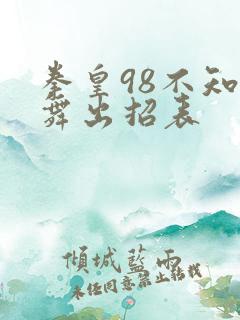 拳皇98不知
舞出招表
傾城藍雨
未经同意禁止转载